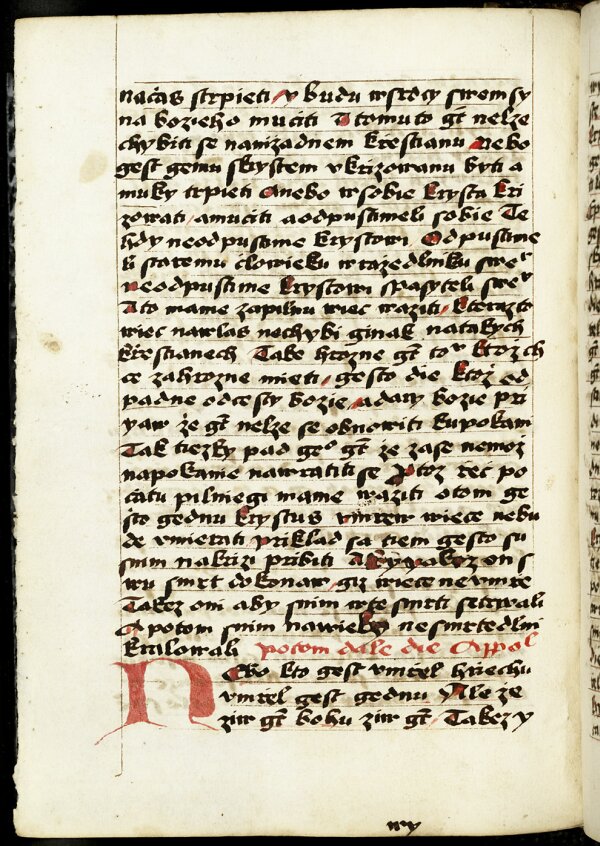 načas strpieti / y budu w srdcy swem sy
na bozieho muciti A tomuto gt̄ nelze
chybiti se nanizadnem krestianu Nebo
gest gemu s krystem vkrizowanu byti a
muky trpieti Anebo w sobie krysta kri
zowati / amuciti aodpustimeli sobie Te
hdy neodpustime krystowi Odpustime
li staremu clowieku w razedlniku swe͛
neodpustime krystowi spasyteli swe͛
A to mame zapilnu wiec waziti / kterazto
wiec nawlas nechybi ginak natakych
krestianech Take hrozne gt̄ to v ktož ch
ce zahrozne mieti / gesto die ktož od
padne odcesty bozie / adary bozie pri
yaw že gt̄ nelze se obnowiti kupokani
Tak tiezky pad geo gt̄ že zase nemož
napokanie nawratiti se Protož rec po
čatu pilniegi mame waziti o tom ge
što gednu krystus vmrew wiece nebu
de vmierati priklad sa tiem gesto su
snim nakrizi pribiti Aby yakoz on s
wu smrt dokonaw / giz wiece ne vmre
Takez oni aby snim w te smrti setrwali
A potom snim nawieky nesmrtedlni
kralowali potom dale die Appol
Nebo kto gest vmrel hriechu
vmrel gest gednu Ale ze
ziw gt̄ bohu ziw gt̄ / Takez y
wy